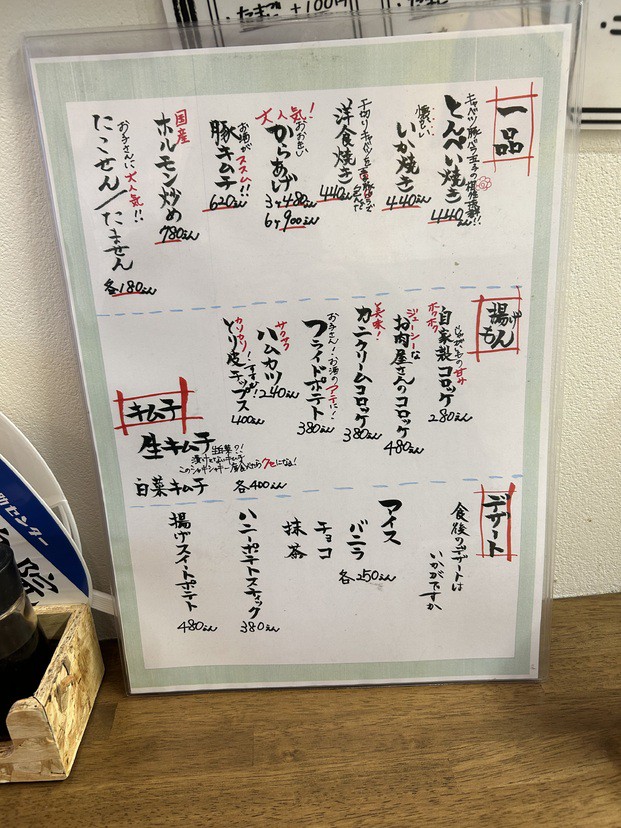 +100円
一品
とんぺい焼き
440えん
いか焼き
440えん
洋食焼き
440えん
大人気!
おおきい
からあげ
3ヶ480えん
6ヶ900えん
お酒がススム!!
豚キムチ
620えん
国産
ホルモン炒め
780えん
お子さんに大人気!!
たこせん/たません
各180えん
揚げもん
じゃがいもの甘み
ホクホク
自家製コロッケ
280えん
ジューシーな
お肉屋さんのコロッケ
480えん
美味!
カニクリームコロッケ
380えん
お子さん!お酒のアテに!
フライドポテト
380えん
サクサク
ハムカツ
240えん
カリカリ
とり皮チップス
400えん
キムチ
生キムチ
漬けてないキムチ
このシャキシャキ
クセになる!
白菜キムチ
各400えん
デザート
食後のデザートは
いかがですか
アイス
バニラ
チョコ
抹茶
各250えん
ハニーポテトスティック
380えん
揚げスイートポテト
480えん
センター